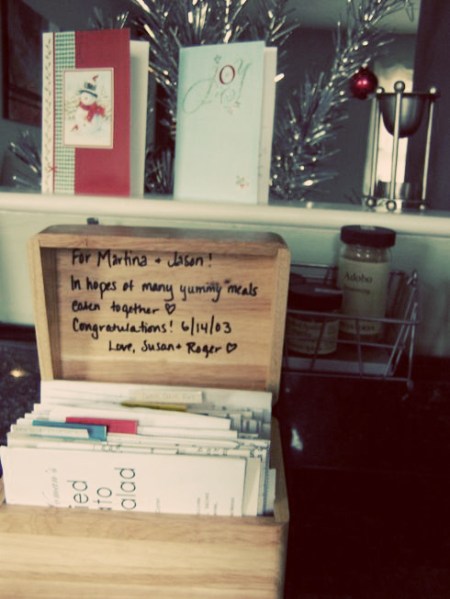 JOY
For Martina + Jason!
In hopes of many yummy meals
eaten together ♡
Congratulations! 6/14/03
Love, Susan + Roger ♡
Adobo